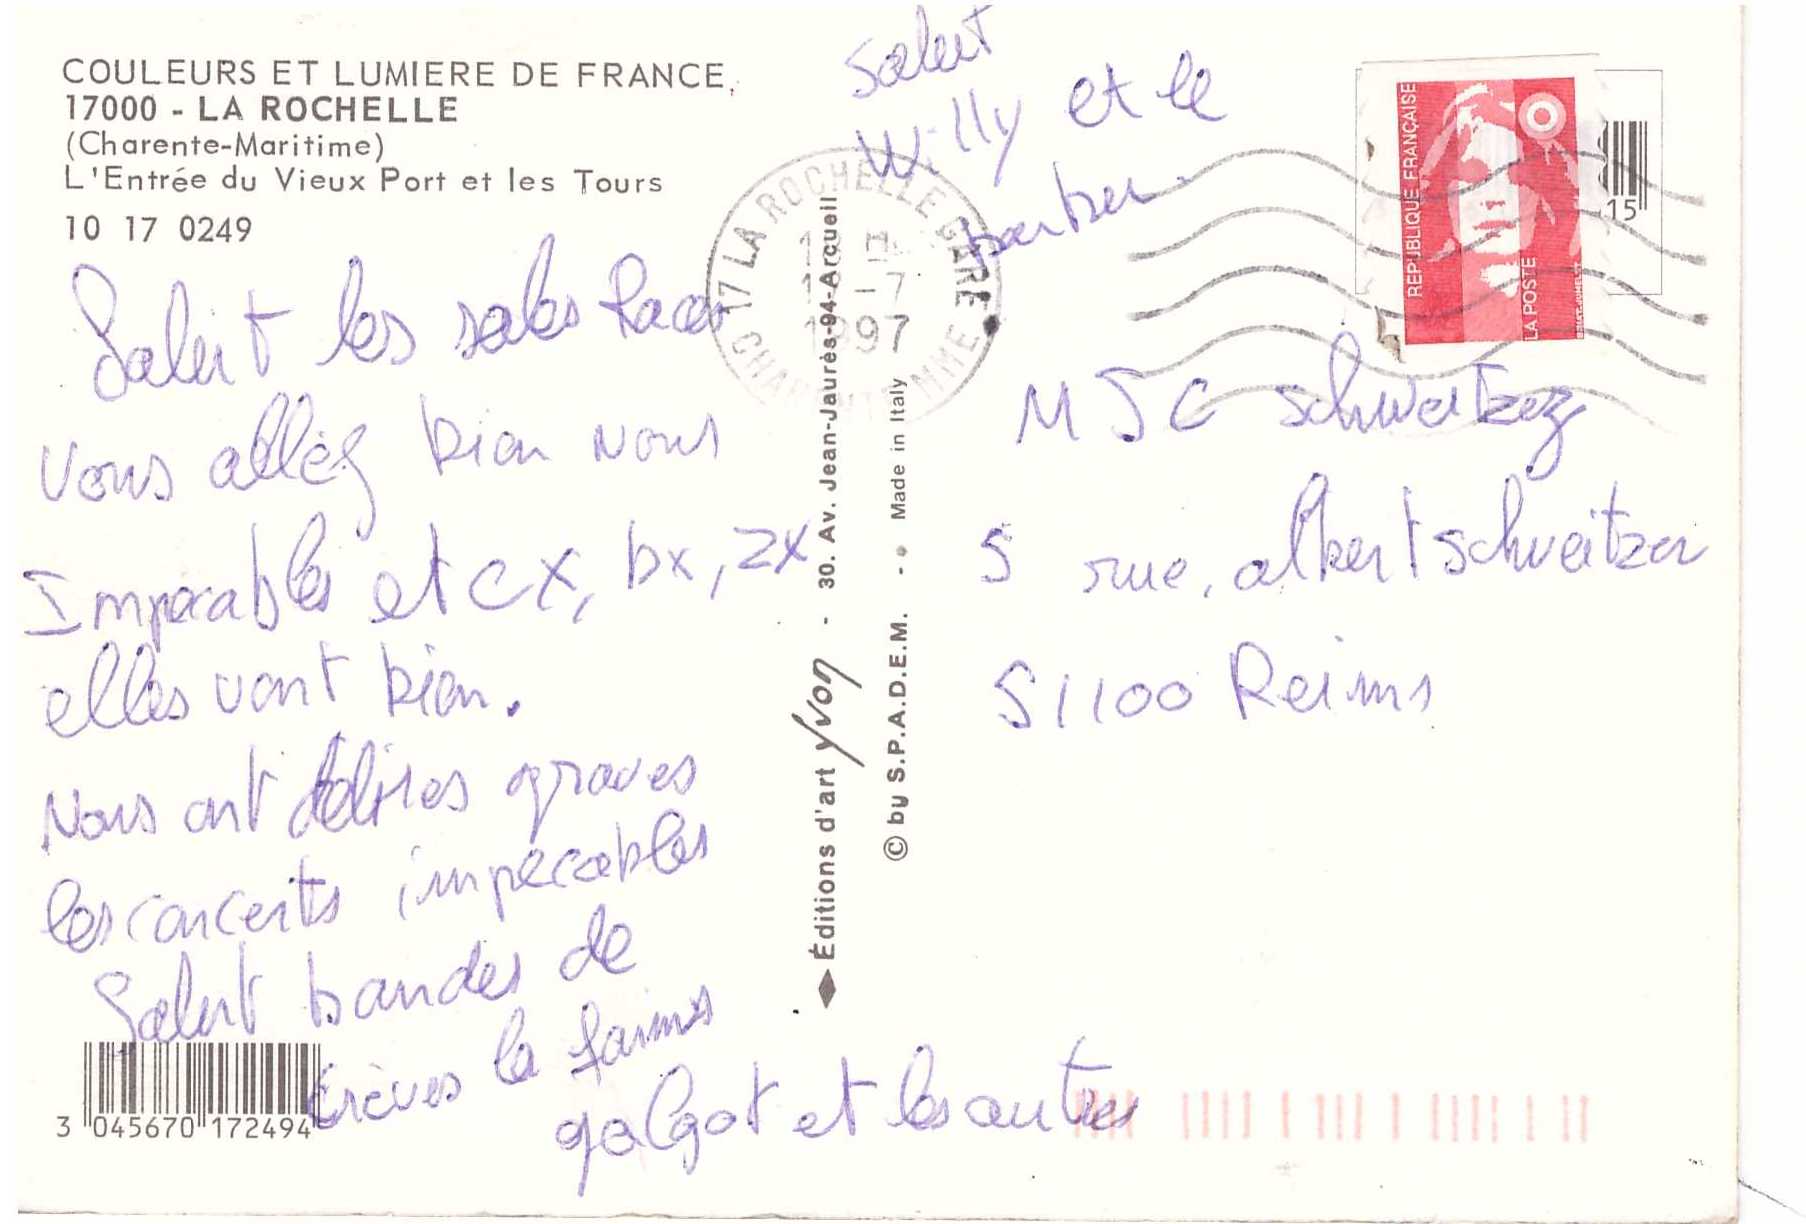 COULEURS ET LUMIERE DE FRANCE
17000 - LA ROCHELLE
(Charente-Maritime)
L'Entrée du Vieux Port et les Tours
10 17 0249
Salut les sales Races
vous allez bien Nous
Impecables et cx, bx, zx
elles vont bien.
Nous ont délires graves
les concerts impecables
Salut bandes de
crèves la faimes
galgot et les autres
3 045670 172494
Salut
Willy et le
17 LA ROCHELLE GARE
-7
1997
CHARENTE MME
Éditions d'art Yvon - 30. Av. Jean-Jaurès-94-Arcueil
© by S.P.A.D.E.M. - Made in Italy
REPUBLIQUE FRANÇAISE
LA POSTE
15
MJC schweitzez
5 rue, albert schweitzer
51100 Reims